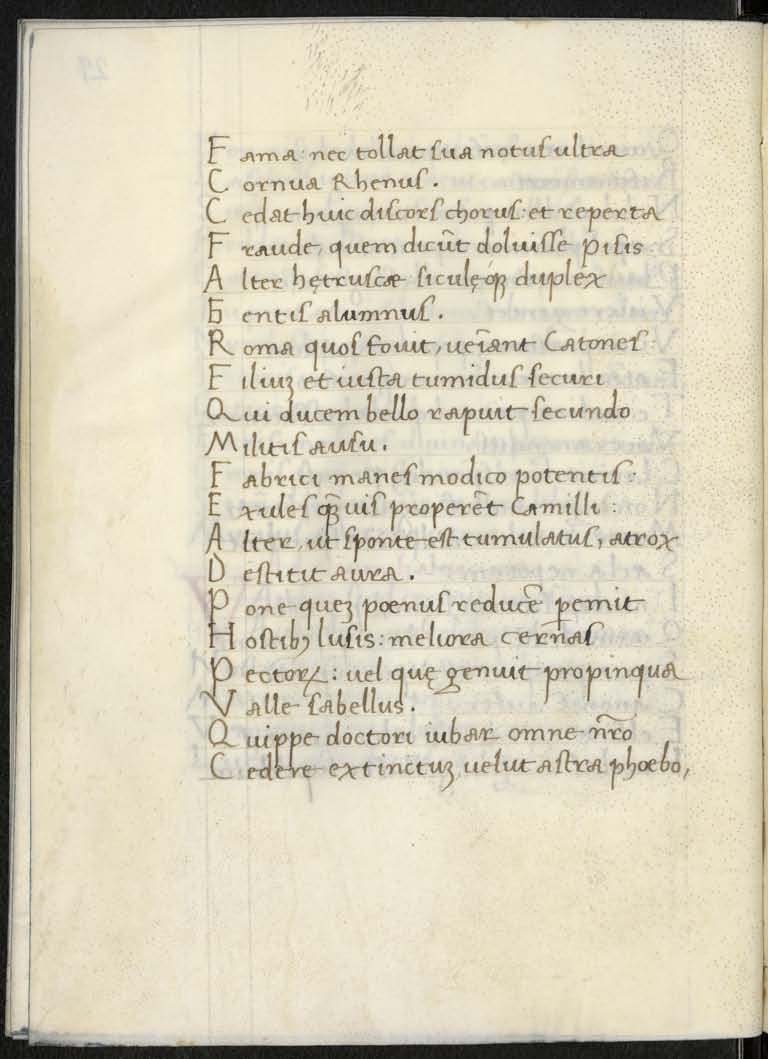 F ama: nec tollat sua notus ultra
C ornua Rhenus.
C edat huic discors chorus: et reperta
F raude, quem dicũt doluisse pisis
A lter hętruscæ siculęqꝫ duplex
G entis alumnus.
R oma quos fouit, ueĩant Catones
F iliuꝫ et iusta tumidus securi
Q ui ducem bello rapuit secundo
M ilitis ausu.
F abrici manes modico potentis:
E xules qꝫuis properẽt Camilli:
A lter, ut sponte est tumulatus, atrox
D estitit aura.
P one queꝫ poenus reducẽ ꝑemit
H ostibꝫ lusis: meliora cernas
P ectorꝝ: uel quę genuit propinqua
V alle sabellus.
Q uippe doctori iubar omne nr̃o
C edere extinctuꝫ uelut astra phoebo,